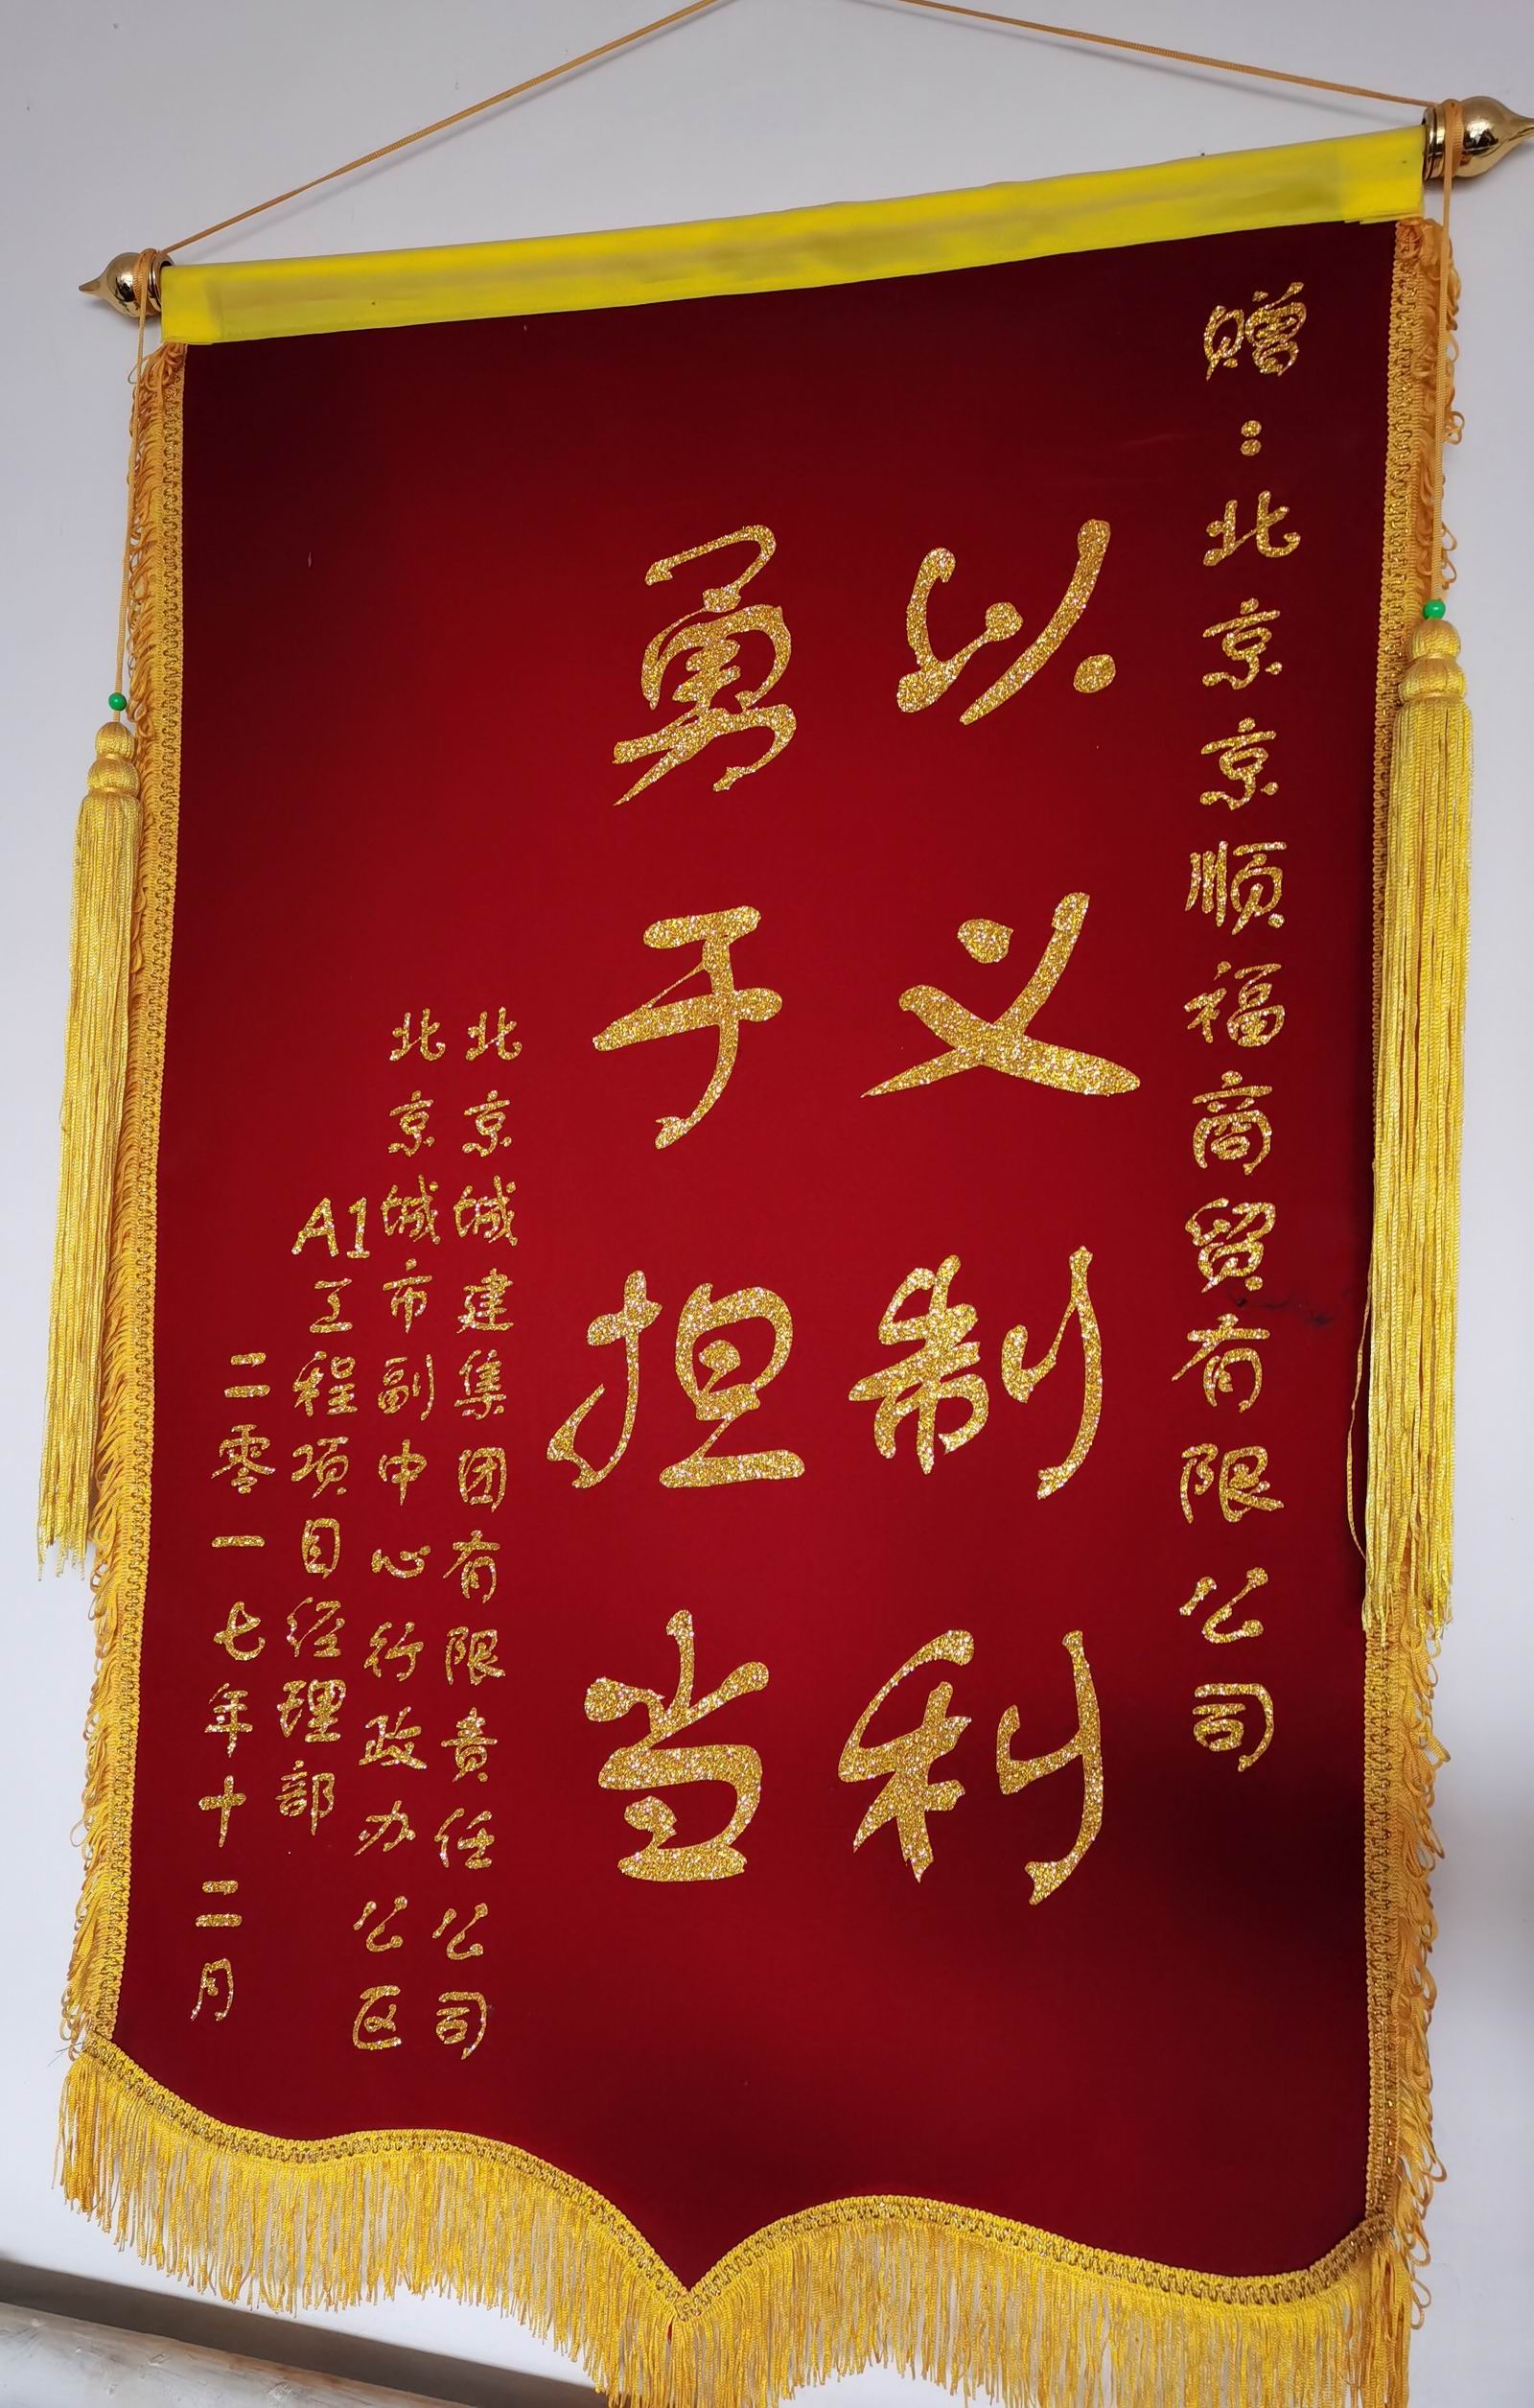 赠:北京京顺福商贸有限公司
以义制利
勇于担当
北京城建集团有限责任公司
北京城市副中心行政办公区
A1工程项目经理部
二零一七年十二月